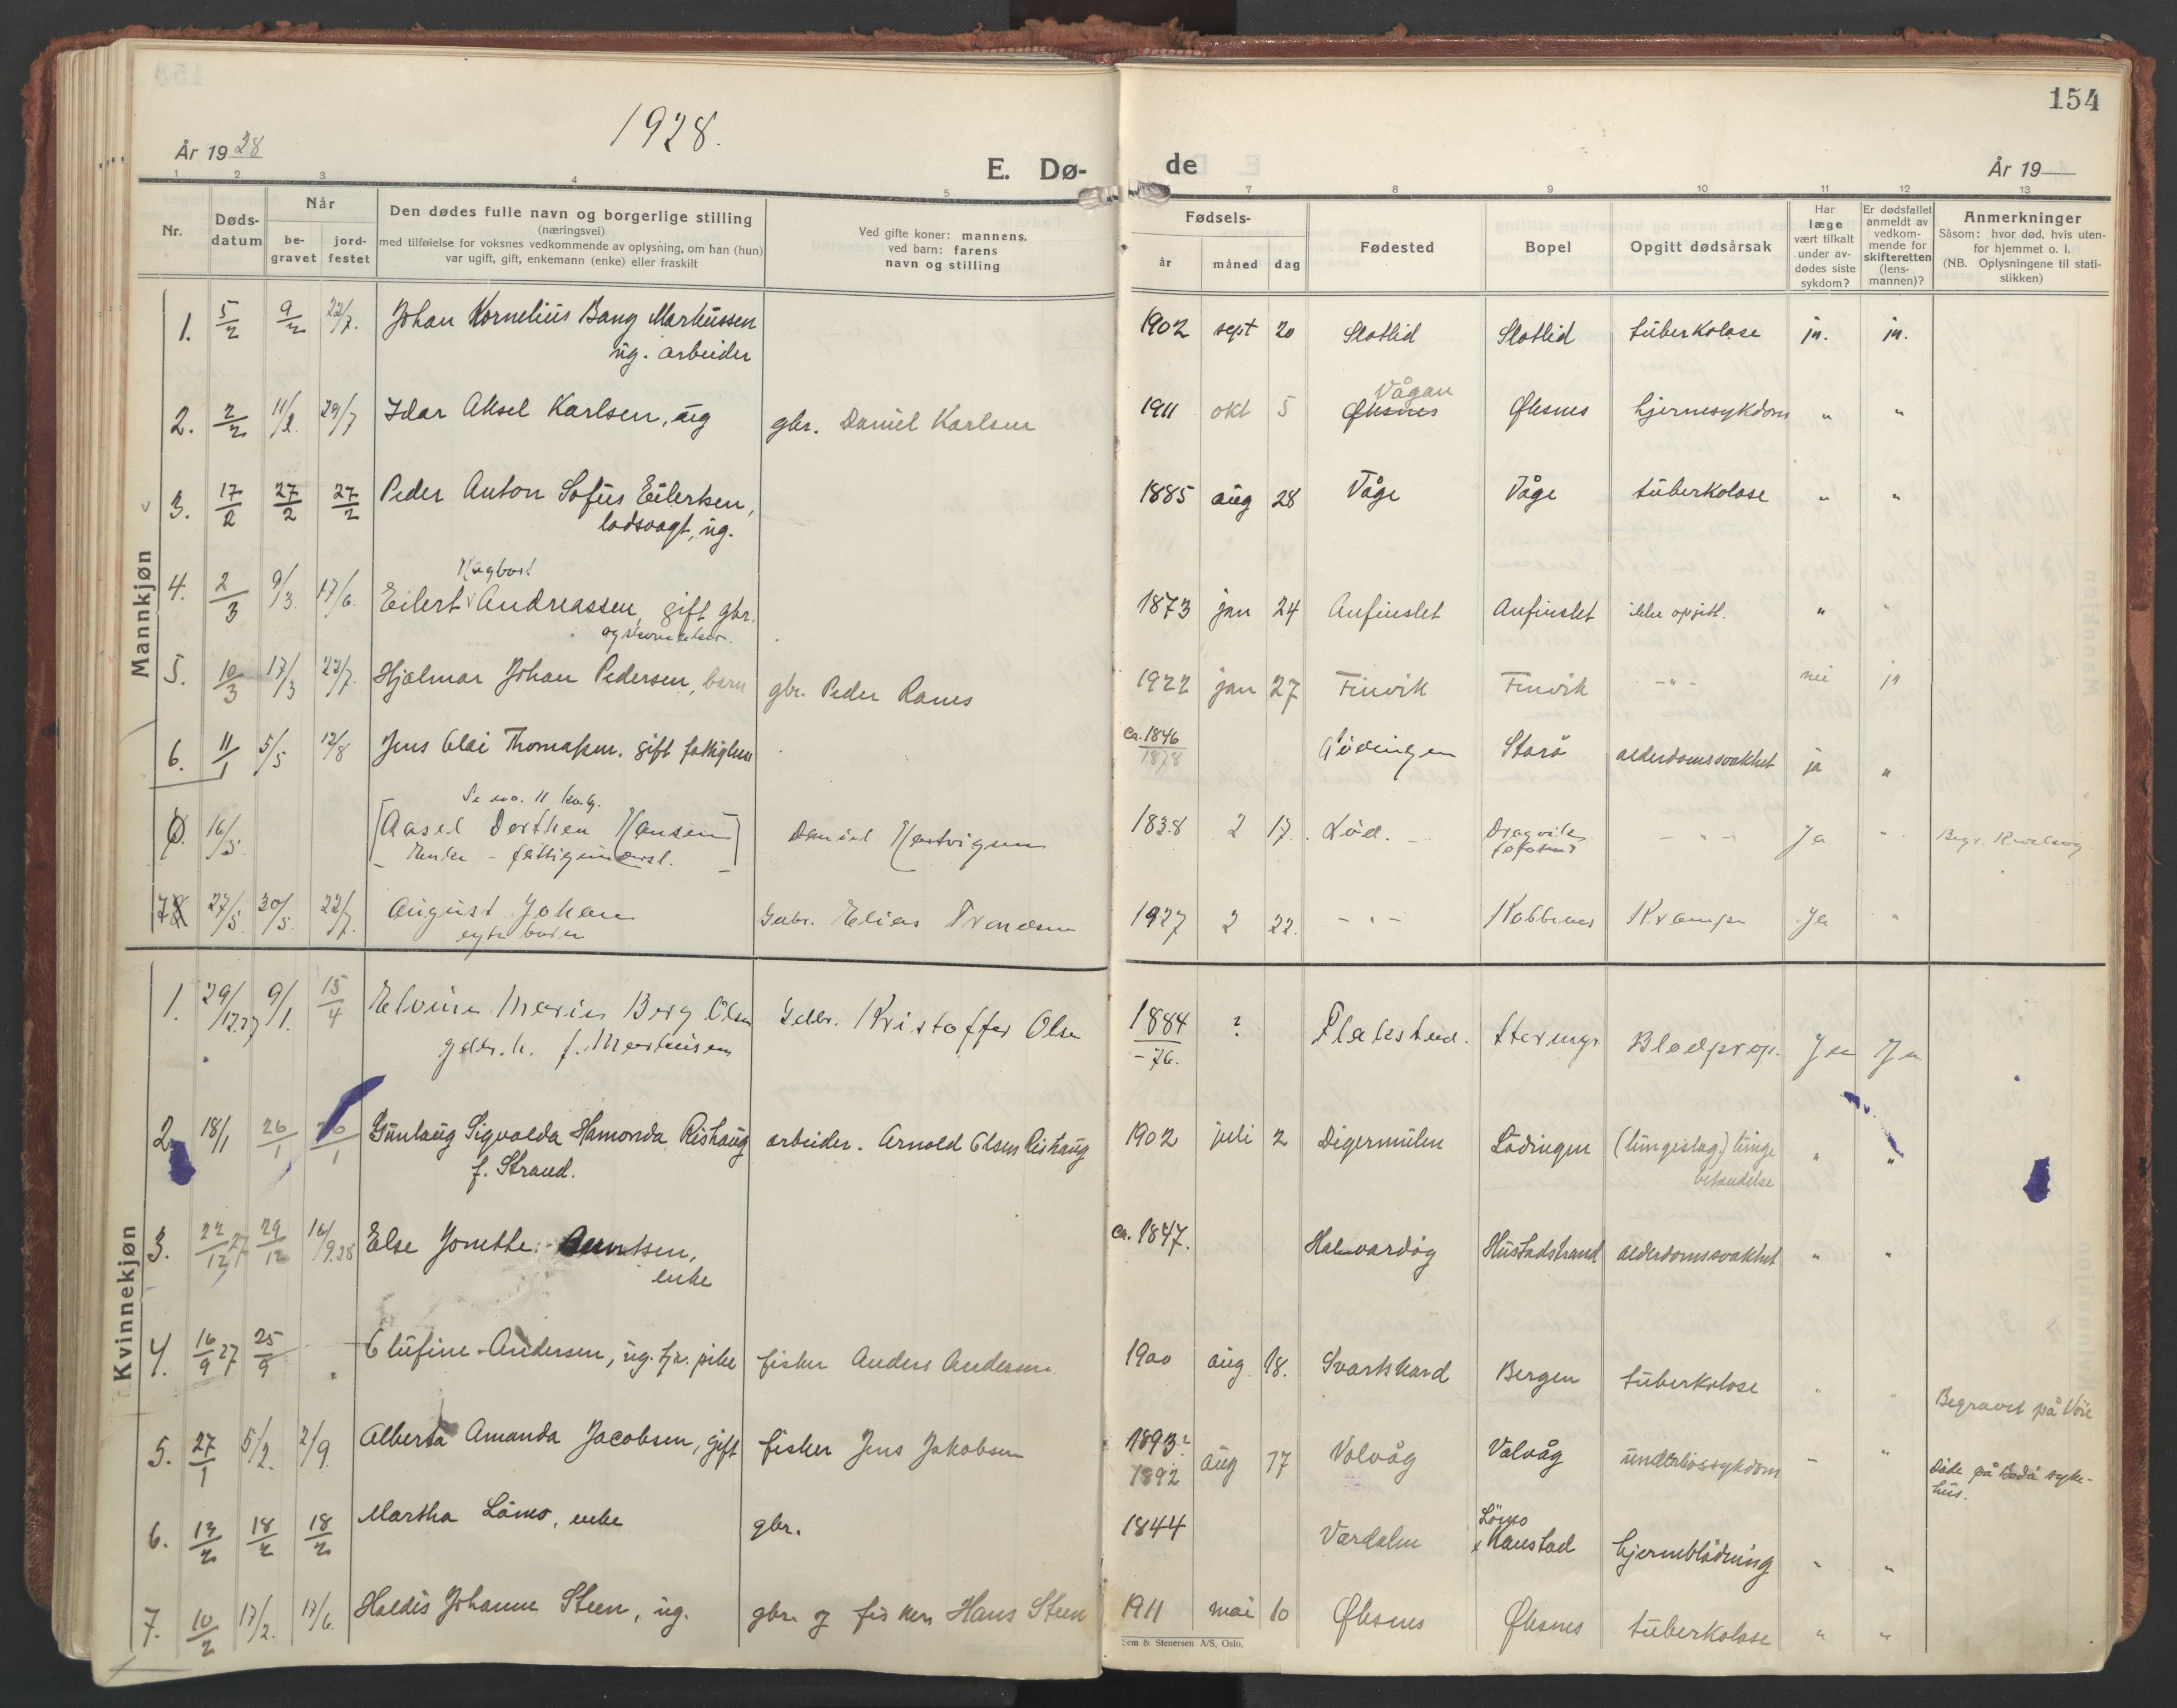 154
1928.
År 19 28
E. Dø-
de
År 19
1 2 3 4 5 7 8 9 10 11 12 13
Nr.
Døds-
datum
Når
be-
gravet
jord-
festet
Den dødes fulle navn og borgerlige stilling
(næringsvei)
med tilføielse for voksnes vedkommende av oplysning, om han (hun)
var ugift, gift, enkemann (enke) eller fraskilt
Ved gifte koner: mannens,
ved barn: farens
navn og stilling
Fødsels-
år måned dag
Fødested
Bopel
Opgitt dødsårsak
Har
læge
vært tilkalt
under av-
dødes siste
sykdom?
Er dødsfallet
anmeldt av
vedkom-
mende for
skifteretten
(lens-
mannen)?
Anmerkninger
Såsom: hvor død, hvis uten-
for hjemmet o. l.
(NB. Oplysningene til stati-
stikken)
Mannkjøn
1. 5/2 9/2 22/7. Johan Kornelius Bang Markussen 1902 sept 20 Slotlid Slotlid tuberkolose ja. ja.
ug. arbeider
Vågan
2. 2/2 11/2. 29/7 Idar Aksel Karlsen, ug gbr. Daniel Karlsen 1911 okt 5 Øksnes Øksnes hjernesykdom " "
3. 17/2 27/2 27/2 Peder Anton Sofus Eilertsen, 1885 aug 28 Våge Våge tuberkolose " "
ladsvagt, ug.
Hagbart
4. 2/3 9/3. 17/6. Eilert Andreassen, gift gbr. 1873 jan 24 Anfinslet Anfinslet ikke opgitt. " "
5. 10/3 17/3 22/7. Hjalmar Johan Pedersen, barn gbr. Peder Ranes 1922 jan 27 Finvik Finvik -"- nei ja
6. 11/1 5/5 12/8 Jens Olai Thomassen, gift fattiglem ca. 1846 Lødingen Storø alderdomssvakhet ja "
1878
Se no. 11 kv.kj.
16/5. [Aasel Dorthea Hansen] Daniel Hartvigsen 1838 2 17. Lød. Dragvik -"- Ja " Begr.
Enke - fattigunderst.
7 27/5. 30/5. 22/7. August Johan Gbr. Elias 1927 2 22. -"- Kobbenes Krampe Ja "
Kvinnekjøn
1. 29/12.27 9/1. 15/4 Elvine Marie Berg Olsen Gdbr. Kristoffer Olsen 1884 ? Flakstad. Blodprop. Ja Ja
gdbr.k. f. Martinsen -76.
2. 18/1 26/1 26/1 Gunlaug Sigvalda Hamonda Rishaug arbeider. Arnold Olsen Rishaug 1902 juli 2 Digermulen Lödingen (lungeslag.) lunge " "
f. Strand. betendelse
3. 22/12 27 29/12 16/9.28 Else Jonette Arntsen, ca. 1847. Halvardøy Hustadstrand alderdomssvakhet " "
enke
4. 16/9 27 25/9 " Olufine Andersen, ug. tj. pike fisker Anders Andersen 1900 aug 18. Svartskard Bergen tuberkolose " " Begravet på Vöie
5. 27/1 5/2. 2/9. Alberta Amanda Jacobsen, gift fisker Jens Jakobsen 1893? aug 17 Valvåg Valvåg underlivssykdom - " Döde på Bodö syke-
1892 hus.
6. 13/2 18/2 18/2 Martha Lömo, enke gbr. 1844 Værdalen Lömo hjerneblödning " "
x Kanstad
7. 10/2 17/2. 17/6. Haldis Johanne Steen, ug. gbr. og fisker Hans Steen 1911 mai 10 Øksnes Øksnes tuberkolose " "
Sem & Stenersen A/S, Oslo.